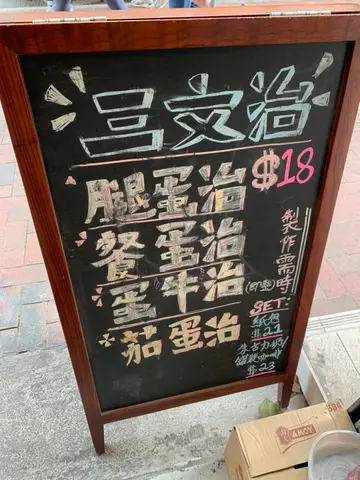 吕文治
腿蛋治 $18
餐蛋治
蛋牛治
茄蛋治
製作需時
SET:
紙包
$21
朱古力奶
$23
AMOY